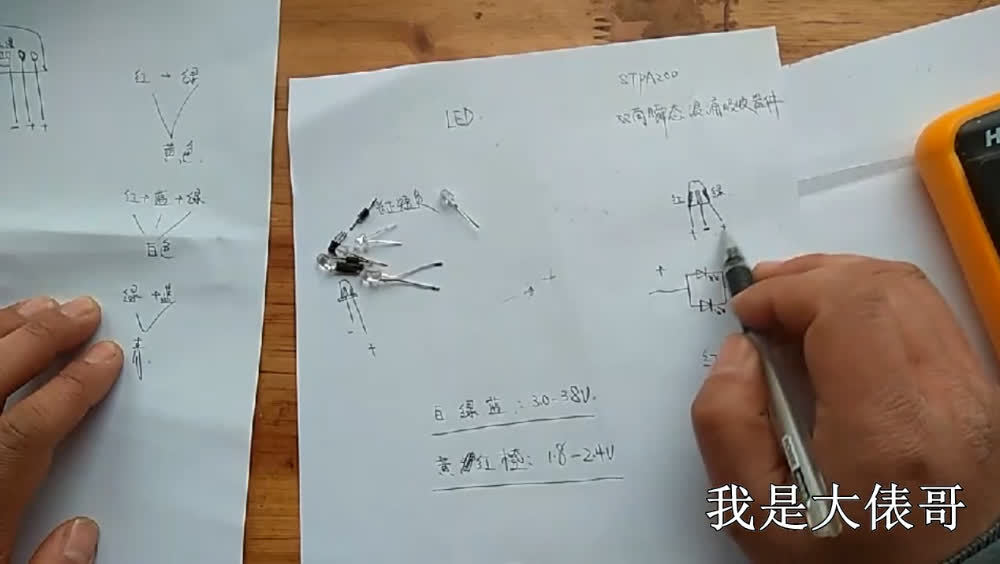 红 → 绿
黄色
红+蓝+绿
白色
绿+蓝
青
LED
STPA200
双向瞬态浪涌吸收器件
红 绿
+ - +
- +
+
白 绿 蓝：3.0-3.8V
黄 红 橙：1.8-2.4V
红
- + +
H
我是大俵哥